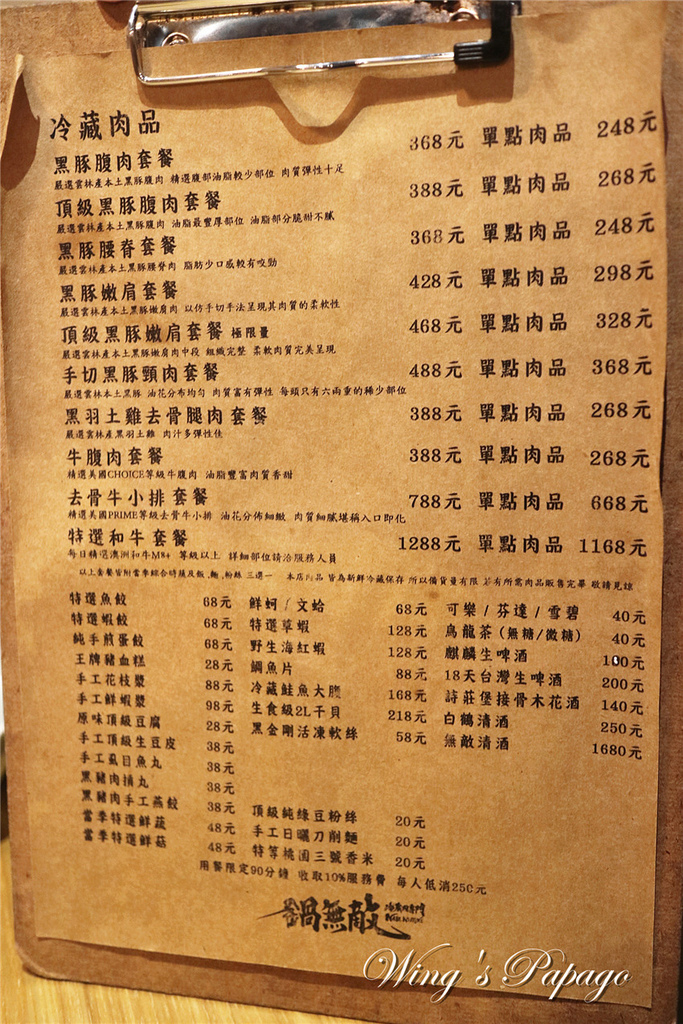 冷藏肉品
黑豚腹肉套餐 368元 單點肉品 248元
嚴選雲林產本土黑豚腹肉 精選腹部油脂較少部位 肉質彈性十足
頂級黑豚腹肉套餐 388元 單點肉品 268元
嚴選雲林產本土黑豚腹肉 油脂最豐厚部位 油脂部分脆甜不膩
黑豚腰脊套餐 368元 單點肉品 248元
嚴選雲林產本土黑豚腰脊肉 脂肪少口感較有咬勁
黑豚嫩肩套餐 428元 單點肉品 298元
嚴選雲林產本土黑豚嫩肩肉 以仿手切手法呈現其肉質的柔軟性
頂級黑豚嫩肩套餐 極限量 468元 單點肉品 328元
嚴選雲林產本土黑豚嫩肩肉中段 組織完整 柔軟肉質完美呈現
手切黑豚頸肉套餐 488元 單點肉品 368元
嚴選雲林產本土黑豚 油花分布均勻 肉質富有彈性 每頭只有六兩重的稀少部位
黑羽土雞去骨腿肉套餐 388元 單點肉品 268元
嚴選雲林產黑羽土雞 肉汁多彈性佳
牛腹肉套餐 388元 單點肉品 268元
精選美國CHOICE等級牛腹肉 油脂豐富肉質香甜
去骨牛小排套餐 788元 單點肉品 668元
精選美國PRIME等級去骨牛小排 油花分佈細緻 肉質細膩堪稱入口即化
特選和牛套餐 1288元 單點肉品 1168元
每日精選澳洲和牛M8+ 等級以上 詳細部位請洽服務人員
以上套餐皆附當季綜合時蔬及飯.麵.粉絲 三選一 本店肉品 皆為新鮮冷藏保存 所以備貨量有限 若有所需肉品販售完畢 敬請見諒
特選魚餃 68元
特選蝦餃 68元
純手煎蛋餃 68元
王牌豬血糕 28元
手工花枝漿 88元
手工鮮蝦漿 98元
原味頂級豆腐 28元
手工頂級生豆皮 38元
手工虱目魚丸 38元
黑豬肉摃丸 38元
黑豬肉手工燕餃 38元
當季特選鮮蔬 48元
當季特選鮮菇 48元
鮮蚵 / 文蛤 68元
特選草蝦 128元
野生海紅蝦 128元
鯛魚片 88元
冷藏鮭魚大腹 168元
生食級2L干貝 218元
黑金剛活凍軟絲 58元
頂級純綠豆粉絲 20元
手工日曬刀削麵 20元
特等桃園三號香米 20元
可樂 / 芬達 / 雪碧 40元
烏龍茶(無糖/微糖) 40元
麒麟生啤酒 100元
18天台灣生啤酒 200元
詩莊堡接骨木花酒 140元
白鶴清酒 250元
無敵清酒 1680元
用餐限定90分鐘 收取10%服務費 每人低消250元
鍋無敵
Wing's Papago